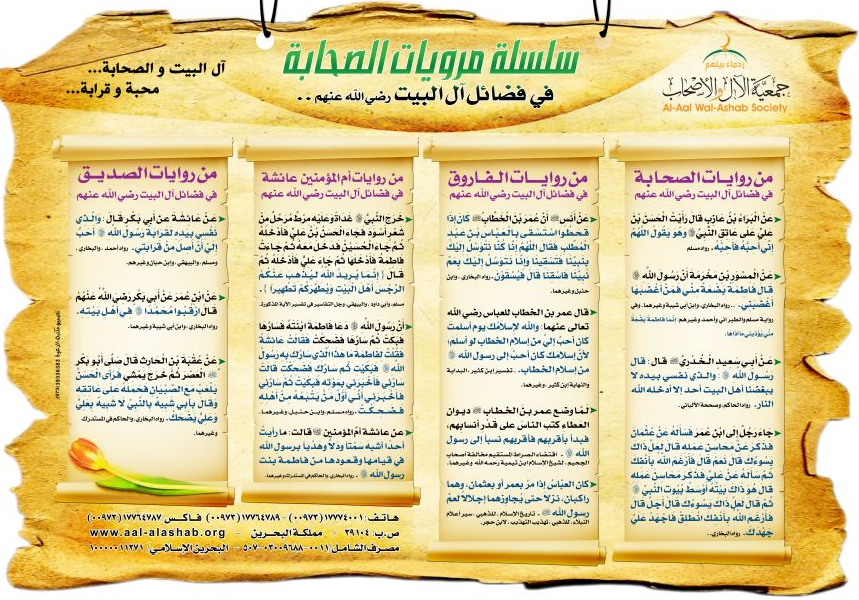 رحماء بينهم
جمعية الآل والأصحاب
Al-Aal Wal-Ashab Society
سلسلة مرويات الصحابة
في فضائل آل البيت رضي الله عنهم ..
آل البيت و الصحابة...
محبة و قرابة...
من روايات الصحابة
في فضائل آل البيت رضي الله عنهم
عن البراء بن عازب قال رأيت الحسن بن
علي على عاتق النبي ﷺ وهو يقول اللهم
إني أحبه فأحبه. رواه مسلم
عن المسور بن مخرمة أن رسول الله ﷺ
قال: فاطمة بضعة مني فمن أغضبها
أغضبني. .. رواه البخاري وابن أبي شيبة وغيرهما. وفي
رواية مسلم والطبراني وأحمد وغيرهم إنما فاطمة بضعة
مني يؤذيني ما آذاها.
عن أبي سعيد الخدري ﷺ قال: قال
رسول الله ﷺ: والذي نفسي بيده لا
يبغضنا أهل البيت أحد إلا أدخله الله
النار. رواه الحاكم، وصححه الألباني.
جاء رجل إلى ابن عمر فسأله عن عثمان
فذكر عن محاسن عمله قال لعل ذاك
يسوءك قال نعم قال فأرغم الله بأنفك
ثم سأله عن علي فذكر محاسن عمله
قال هو ذاك بيته أوسط بيوت النبي ﷺ
ثم قال لعل ذاك يسوءك قال أجل قال
فأرغم الله بأنفك انطلق فاجهد علي
جهدك. رواه البخاري..
من روايات الفاروق
في فضائل آل البيت رضي الله عنهم
عن أنس ﷺ أن عمر بن الخطاب ﷺ كان إذا
قحطوا استسقى بالعباس بن عبد
المطلب فقال اللهم إنا كنا نتوسل إليك
بنبينا فتسقينا وإنا نتوسل إليك بعم
نبينا فاسقنا قال فيسقون. رواه البخاري، وابن
حنبل وغيرهما.
قال عمر بن الخطاب للعباس رضي الله
تعالى عنهما: والله لإسلامك يوم أسلمت
كان أحب إلي من إسلام الخطاب لو أسلم،
لأن إسلامك كان أحب إلى رسول الله ﷺ
من إسلام الخطاب. . تفسير ابن كثير، البداية
والنهاية ابن كثير. وغيرهما.
لما وضع عمر بن الخطاب ﷺ ديوان
العطاء كتب الناس على قدر أنسابهم،
فبدأ بأقربهم فأقربهم نسبا إلى رسول
الله ﷺ. . اقتضاء الصراط المستقيم مخالفة أصحاب
الجحيم. لشيخ الإسلام ابن تيمية رحمه الله وغيرهما.
كان العباس إذا مر بعمر أو بعثمان، وهما
راكبان، نزلا حتى يجاوزهما إجلالا لعم
رسول الله ﷺ. . تاريخ الإسلام. للذهبي، سير أعلام
النبلاء. للذهبي، تهذيب التهذيب. لابن حجر.
من روايات أم المؤمنين عائشة
في فضائل آل البيت رضي الله عنهم
خرج النبي ﷺ غداة وعليه مرط مرحل من
شعر أسود فجاء الحسن بن علي فأدخله
ثم جاء الحسين فدخل معه ثم جاءت
فاطمة فأدخلها ثم جاء علي فأدخله ثم
قال { إنما يريد الله ليذهب عنكم
الرجس أهل البيت ويطهركم تطهيرا } .
مسلم، وأبي داود ، والبيهقي، وجل التفاسير في تفسير الآية المذكورة.
أن رسول الله ﷺ دعا فاطمة ابنته فسارها
فبكت ثم سارها فضحكت فقالت عائشة
فقلت لفاطمة ما هذا الذي سارك به رسول
الله ﷺ فبكيت ثم سارك فضحكت قالت
سارني فأخبرني بموته فبكيت ثم سارني
فأخبرني أني أول من يتبعه من أهله
فضحكت. رواه مسلم، وابن حنبل، وغيرهما.
عن عائشة أم المؤمنين ﷺ قالت: ما رأيت
أحدا أشبه سمتا ودلا وهديا برسول الله
في قيامها وقعودها من فاطمة بنت
رسول الله ﷺ. . رواه البخاري، والحاكم في المستدرك وغيرهما.
من روايات الصديق
في فضائل آل البيت رضي الله عنهم
عن عائشة عن أبي بكر قال: والذي
نفسي بيده لقرابة رسول الله ﷺ أحب
إلي أن أصل من قرابتي. رواه أحمد . والبخاري .
ومسلم، والبيهقي، وابن حبان وغيرهم.
عن ابن عمر عن أبي بكر رضي الله عنهم
قال ارقبوا محمدا ﷺ في أهل بيته.
رواه البخاري. وابن أبي شيبة وغيرهما.
عن عقبة بن الحارث قال صلى أبو بكر
ﷺ العصر ثم خرج يمشي فرأى الحسن
يلعب مع الصبيان فحمله على عاتقه
وقال بأبي شبيه بالنبي لا شبيه بعلي
وعلي يضحك. رواه البخاري، والحاكم في المستدرك
وغيرهما.
هاتف: ١٧٧٧٤٠٠١ (٠٠٩٧٣) - ١٧٧٦٤٧٨٩ (٠٠٩٧٣) فاكس: ١٧٧٦٤٧٨٧ (٠٠٩٧٣)
ص.ب: ٣٩١٠٤ - مملكة البحرين - www.aal-alashab.org
مصرف الشامل: ٠٠١١-٠٣٠٠٩٦٨٨-٥٠٧ - البحرين الإسلامي: ١٠٠٠٠٠١١٢٧١